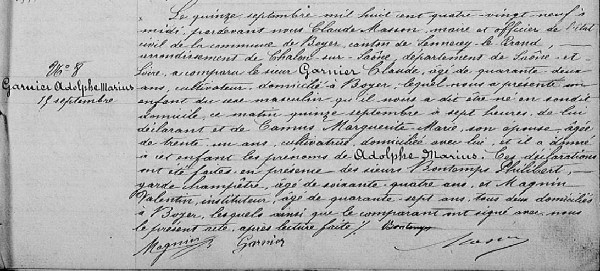 Le quinze septembre mil huit cent quatre-vingt neuf à
midi, pardevant nous Claude Masson, maire et officier de l'état
civil de la commune de Boyer, canton de Sennecey-le-Grand,
arrondissement de Chalon-sur-Saône, département de Saône-et-
Loire, a comparu le sieur Garnier Claude, âgé de quarante-deux
ans, cultivateur, domicilié à Boyer, lequel nous a présenté un
enfant du sexe masculin qu'il nous a dit être né en son dit
domicile, ce matin quinze septembre à sept heures, de lui
déclarant et de Camus Marguerite-Marie, son épouse, âgée
de trente un ans, cultivatrice, domiciliée avec lui, et il a donné
à cet enfant les prénoms de Adolphe Marius. Ces déclarations
ont été faites en présence des sieurs Bontemps Philibert,
garde champêtre, âgé de soixante-quatre ans, et Magnin
Valentin, instituteur, âgé de quarante-sept ans, tous deux domiciliés
à Boyer, lesquels ainsi que le comparant ont signé avec nous
le présent acte, après lecture faite /.
Bontemps
Magnin
Garnier
Masson
N° 8
Garnier Adolphe Marius
15 septembre